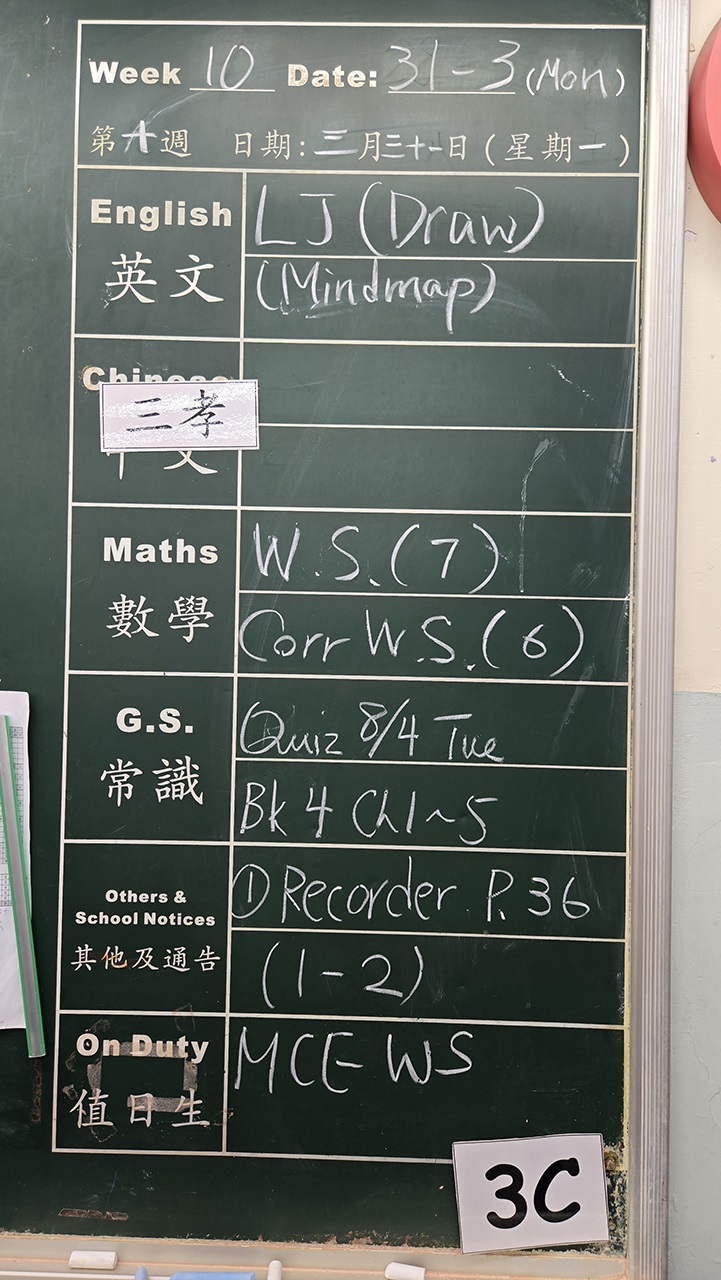 Week 10 Date: 31-3 (Mon)
第十週 日期:三月三十一日(星期一)
English
英文
LJ (Draw)
(Mindmap)
Chinese
三孝
中文
Maths
數學
W.S.(7)
Corr W.S.(6)
G.S.
常識
Quiz 8/4 Tue
Bk 4 Ch1~5
Others &
School Notices
其他及通告
① Recorder P.36
(1-2)
On Duty
值日生
MCE WS
3C